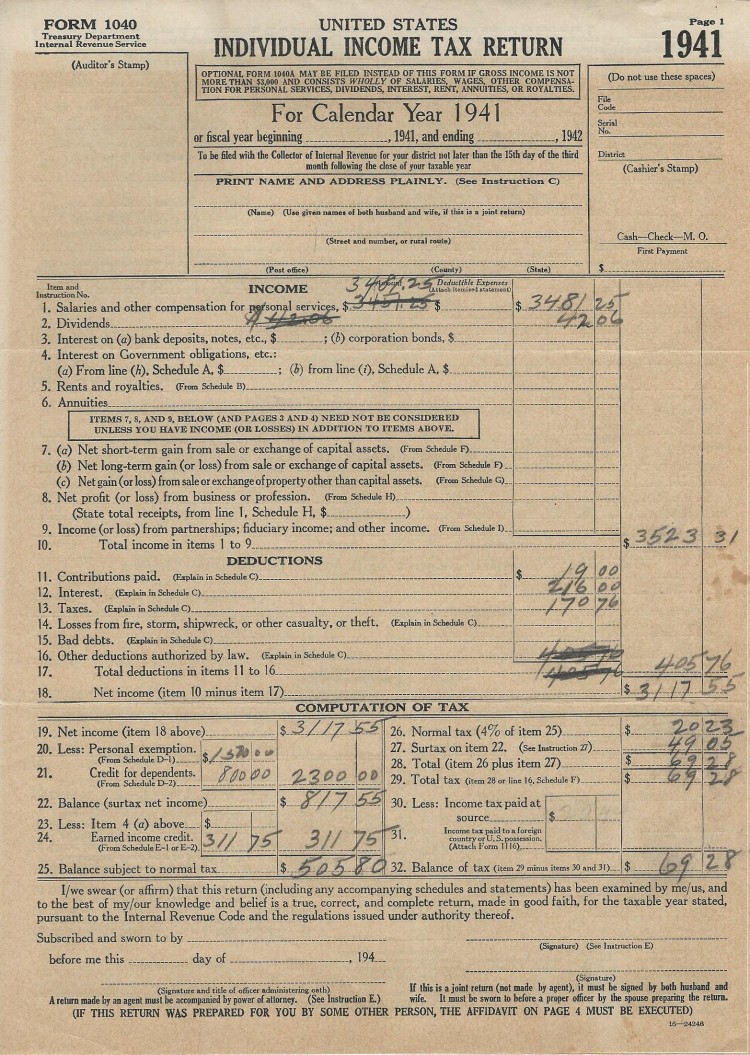 FORM 1040
Treasury Department
Internal Revenue Service
(Auditor's Stamp)
UNITED STATES
INDIVIDUAL INCOME TAX RETURN
Page 1
1941
OPTIONAL FORM 1040A MAY BE FILED INSTEAD OF THIS FORM IF GROSS INCOME IS NOT
MORE THAN $3,000 AND CONSISTS WHOLLY OF SALARIES, WAGES, OTHER COMPENSA-
TION FOR PERSONAL SERVICES, DIVIDENDS, INTEREST, RENT, ANNUITIES, OR ROYALTIES.
For Calendar Year 1941
or fiscal year beginning , 1941, and ending , 1942
To be filed with the Collector of Internal Revenue for your district not later than the 15th day of the third
month following the close of your taxable year
PRINT NAME AND ADDRESS PLAINLY. (See Instruction C)
(Name) (Use given names of both husband and wife, if this is a joint return)
(Street and number, or rural route)
(Post office) (County) (State)
(Do not use these spaces)
File
Code
Serial
No.
District
(Cashier's Stamp)
Cash—Check—M. O.
First Payment
$
Item and
Instruction No.
INCOME
3481.25 Deductible Expenses
(Attach itemized statement)
1. Salaries and other compensation for personal services, $ 3451.25 $ $ 3481 25
2. Dividends $42.06 42 06
3. Interest on (a) bank deposits, notes, etc., $ ; (b) corporation bonds, $
4. Interest on Government obligations, etc.:
(a) From line (h), Schedule A, $ ; (b) from line (i), Schedule A, $
5. Rents and royalties. (From Schedule B)
6. Annuities
ITEMS 7, 8, AND 9, BELOW (AND PAGES 3 AND 4) NEED NOT BE CONSIDERED
UNLESS YOU HAVE INCOME (OR LOSSES) IN ADDITION TO ITEMS ABOVE.
7. (a) Net short-term gain from sale or exchange of capital assets. (From Schedule F)
(b) Net long-term gain (or loss) from sale or exchange of capital assets. (From Schedule F)
(c) Net gain (or loss) from sale or exchange of property other than capital assets. (From Schedule G)
8. Net profit (or loss) from business or profession. (From Schedule H)
(State total receipts, from line 1, Schedule H, $ )
9. Income (or loss) from partnerships; fiduciary income; and other income. (From Schedule I)
10. Total income in items 1 to 9 $ 3523 31
DEDUCTIONS
11. Contributions paid. (Explain in Schedule C) $ 19 00
12. Interest. (Explain in Schedule C) 216 00
13. Taxes. (Explain in Schedule C) 170 76
14. Losses from fire, storm, shipwreck, or other casualty, or theft. (Explain in Schedule C)
15. Bad debts. (Explain in Schedule C)
16. Other deductions authorized by law. (Explain in Schedule C) 405 76
17. Total deductions in items 11 to 16 405 76 405 76
18. Net income (item 10 minus item 17) $ 3117 55
COMPUTATION OF TAX
19. Net income (item 18 above) $ 3117 55
20. Less: Personal exemption. $ 1500 00
(From Schedule D-1)
21. Credit for dependents. 800 00 2300 00
(From Schedule D-2)
22. Balance (surtax net income) $ 817 55
23. Less: Item 4 (a) above $
24. Earned income credit. 311 75 311 75
(From Schedule E-1 or E-2)
25. Balance subject to normal tax $ 505 80
26. Normal tax (4% of item 25) $ 20 23
27. Surtax on item 22. (See Instruction 27) 49 05
28. Total (item 26 plus item 27) $ 69 28
29. Total tax (item 28 or line 16, Schedule F) $ 69 28
30. Less: Income tax paid at
source $
31. Income tax paid to a foreign
country or U. S. possession.
(Attach Form 1116)
32. Balance of tax (item 29 minus items 30 and 31) $ 69 28
I/we swear (or affirm) that this return (including any accompanying schedules and statements) has been examined by me/us, and
to the best of my/our knowledge and belief is a true, correct, and complete return, made in good faith, for the taxable year stated,
pursuant to the Internal Revenue Code and the regulations issued under authority thereof.
Subscribed and sworn to by
before me this day of , 194
(Signature and title of officer administering oath)
A return made by an agent must be accompanied by power of attorney. (See Instruction E.)
(Signature) (See Instruction E)
(Signature)
If this is a joint return (not made by agent), it must be signed by both husband and
wife. It must be sworn to before a proper officer by the spouse preparing the return.
(IF THIS RETURN WAS PREPARED FOR YOU BY SOME OTHER PERSON, THE AFFIDAVIT ON PAGE 4 MUST BE EXECUTED)
16—24246